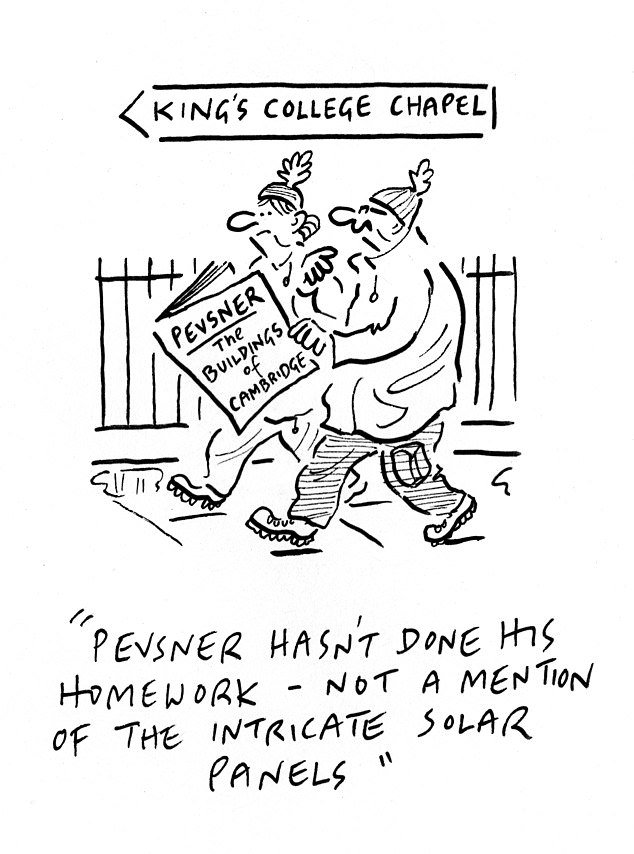 KING'S COLLEGE CHAPEL
PEVSNER
The
BUILDINGS
of
CAMBRIDGE
"PEVSNER HASN'T DONE HIS
HOMEWORK - NOT A MENTION
OF THE INTRICATE SOLAR
PANELS"